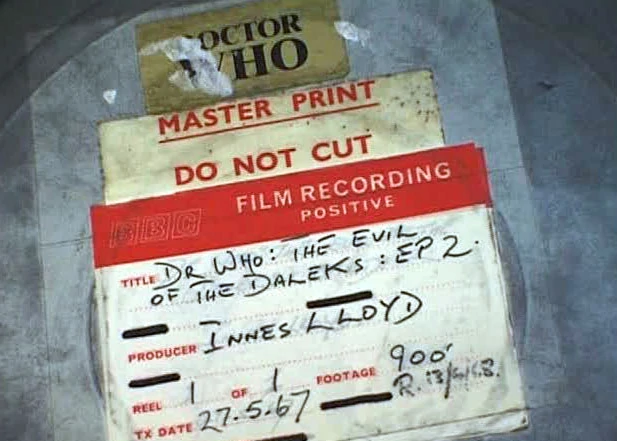 DOCTOR
WHO
MASTER PRINT
DO NOT CUT
BBC
FILM RECORDING
POSITIVE
TITLE DR WHO: THE EVIL
OF THE DALEKS : EP 2.
PRODUCER INNES LLOYD
REEL 1 OF 1 FOOTAGE 900'
R.
TX DATE 27.5.67